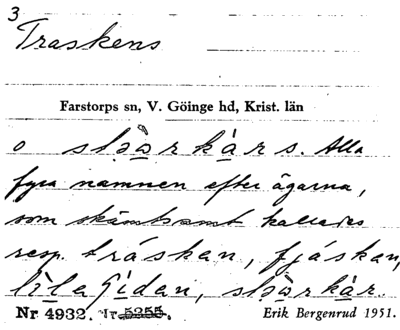 3
Traskens
Farstorps sn, V. Göinge hd, Krist. län
o stòarkárs. Alla
fyra namnen efter ägarna,
som skämtsamt kallades
resp. tráskan, fjáskan,
Nr 4932. Nr 5255. Erik Bergenrud 1951.